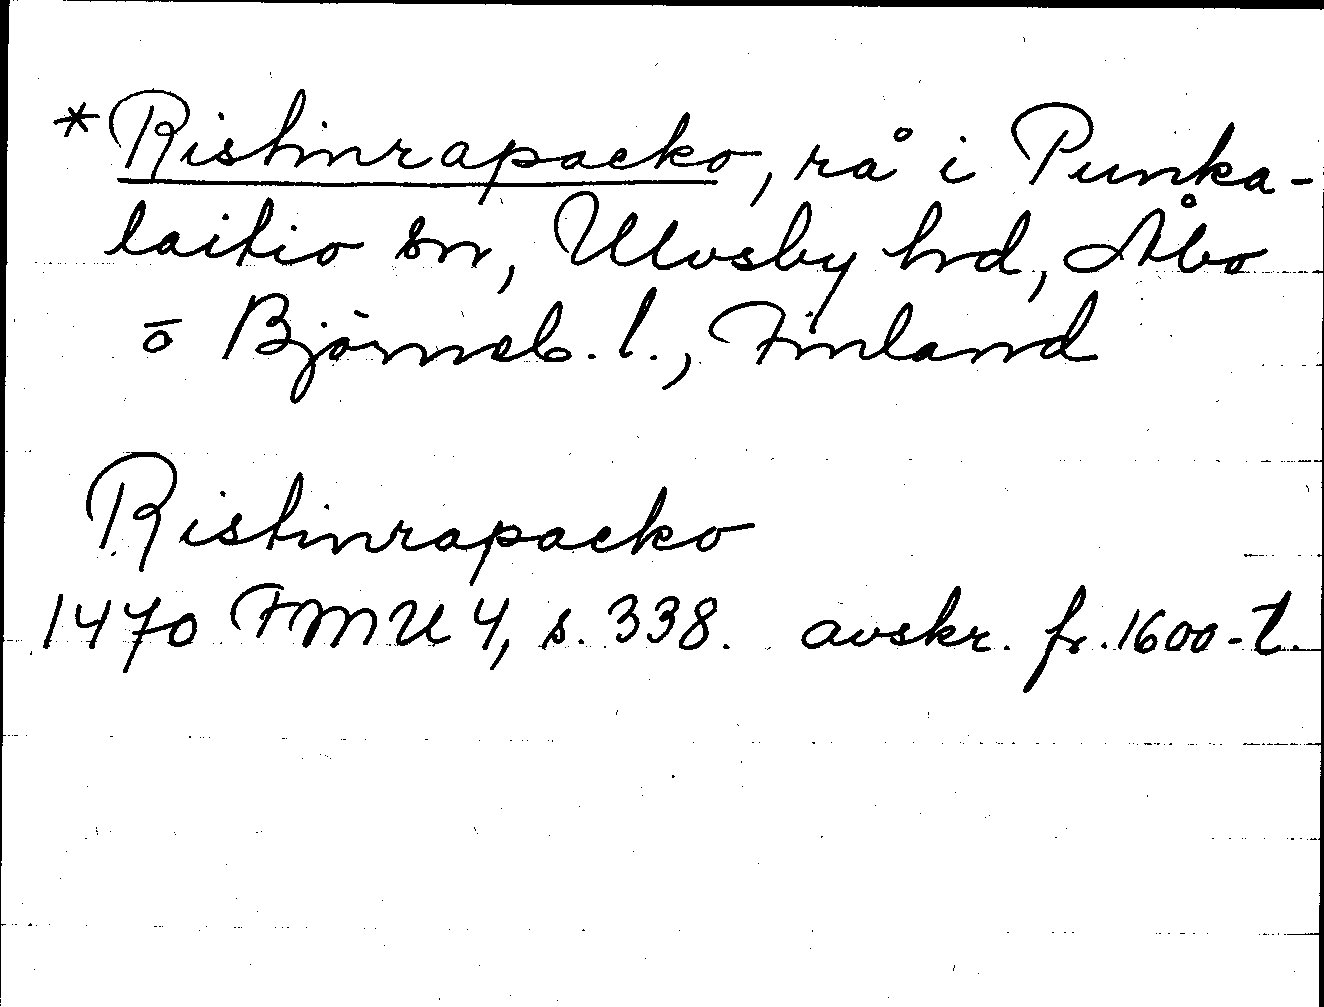 *Ristinrapacko, rå i Punka-
laitio sn, Ulvsby hd, Åbo
o Björneb. l., Finland
Ristinrapacko
1470 FMU 4, s. 338. avskr. fr. 1600-t.